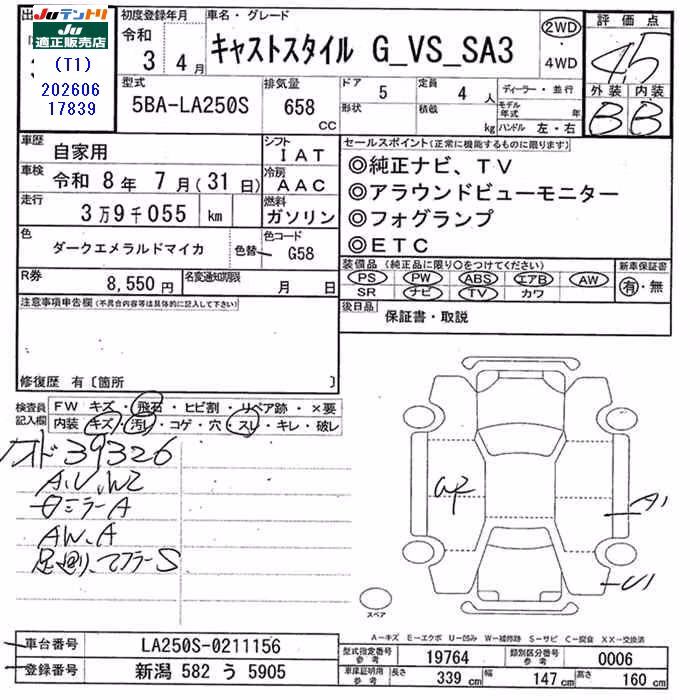 出
Juテントリ
Ju
適正販売店
(T1)
202606
17839
初度登録年月
令和
3 4月
車名・グレード
キャストスタイル G_VS_SA3
2WD
・
4WD
評価点
4.5
外装 内装
B B
型式
5BA-LA250S
排気量
658
CC
ドア 5
形状
定員 4 人
積載 kg
ディーラー・並行
モデル年式 年
ハンドル 左・右
車歴
自家用
シフト
IAT
車検
令和 8年 7月(31日)
冷房
AAC
走行
3万9千055 km
燃料
ガソリン
色
ダークエメラルドマイカ
色替
色コード
G58
R券
8,550円
名変通知期限
月 日
セールスポイント(正常に機能するものに限ります)
◎純正ナビ、TV
◎アラウンドビューモニター
◎フォグランプ
◎ETC
装備品(純正品に限り○をつけてください)
PS PW ABS エアB AW
SR ナビ TV カワ
新車保証書
有・無
後日品
保証書・取説
注意事項申告欄(不具合内容等は具体的に記入して下さい)
修復歴 有〔箇所 〕
検査員
記入欄
FW キズ・飛石・ヒビ割・リペア跡・×要
内装・キズ・汚レ・コゲ・穴・スレ・キレ・破レ
オド39326
A.U.W2
ミラーA
AW.A
足廻り、マフラーS
W2
A1
U1
スペア
A-キズ E-エクボ U-凹み W-補修跡 S-サビ C-腐食 XX-交換済
車台番号
LA250S-0211156
登録番号
新潟 582 う 5905
型式指定番号
参考
19764
類別区分番号
参考
0006
車庫証明用
参考
長さ 339 cm
幅 147 cm
高さ 160 cm